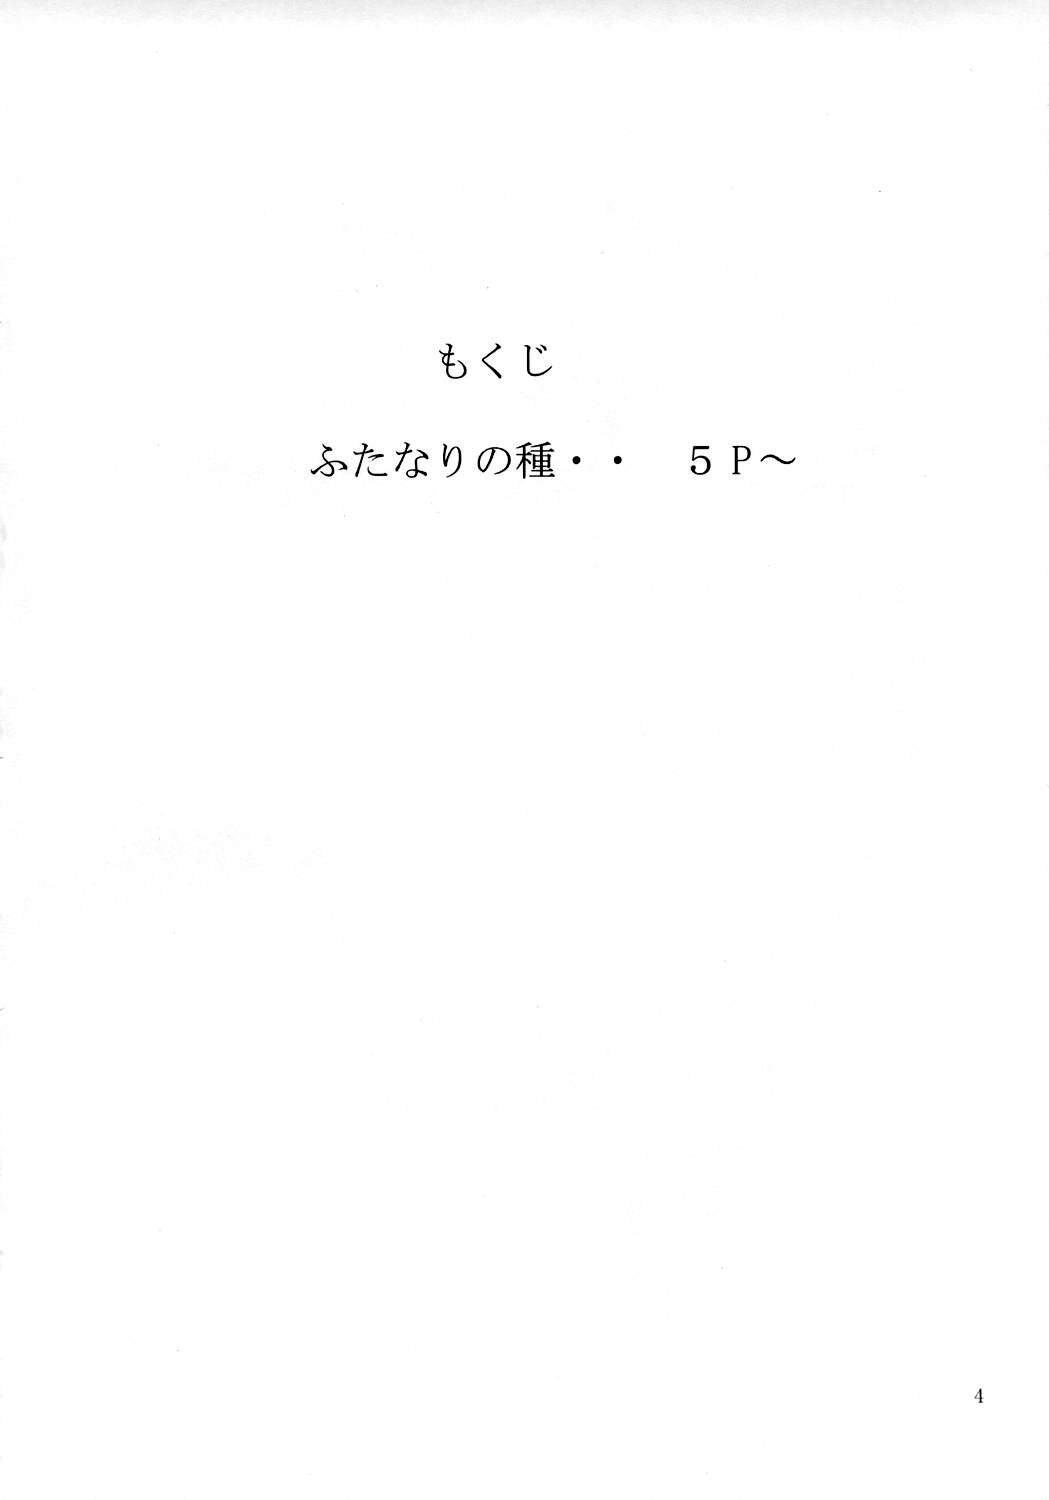 もくじ
ふたなりの種・・　５Ｐ～
4